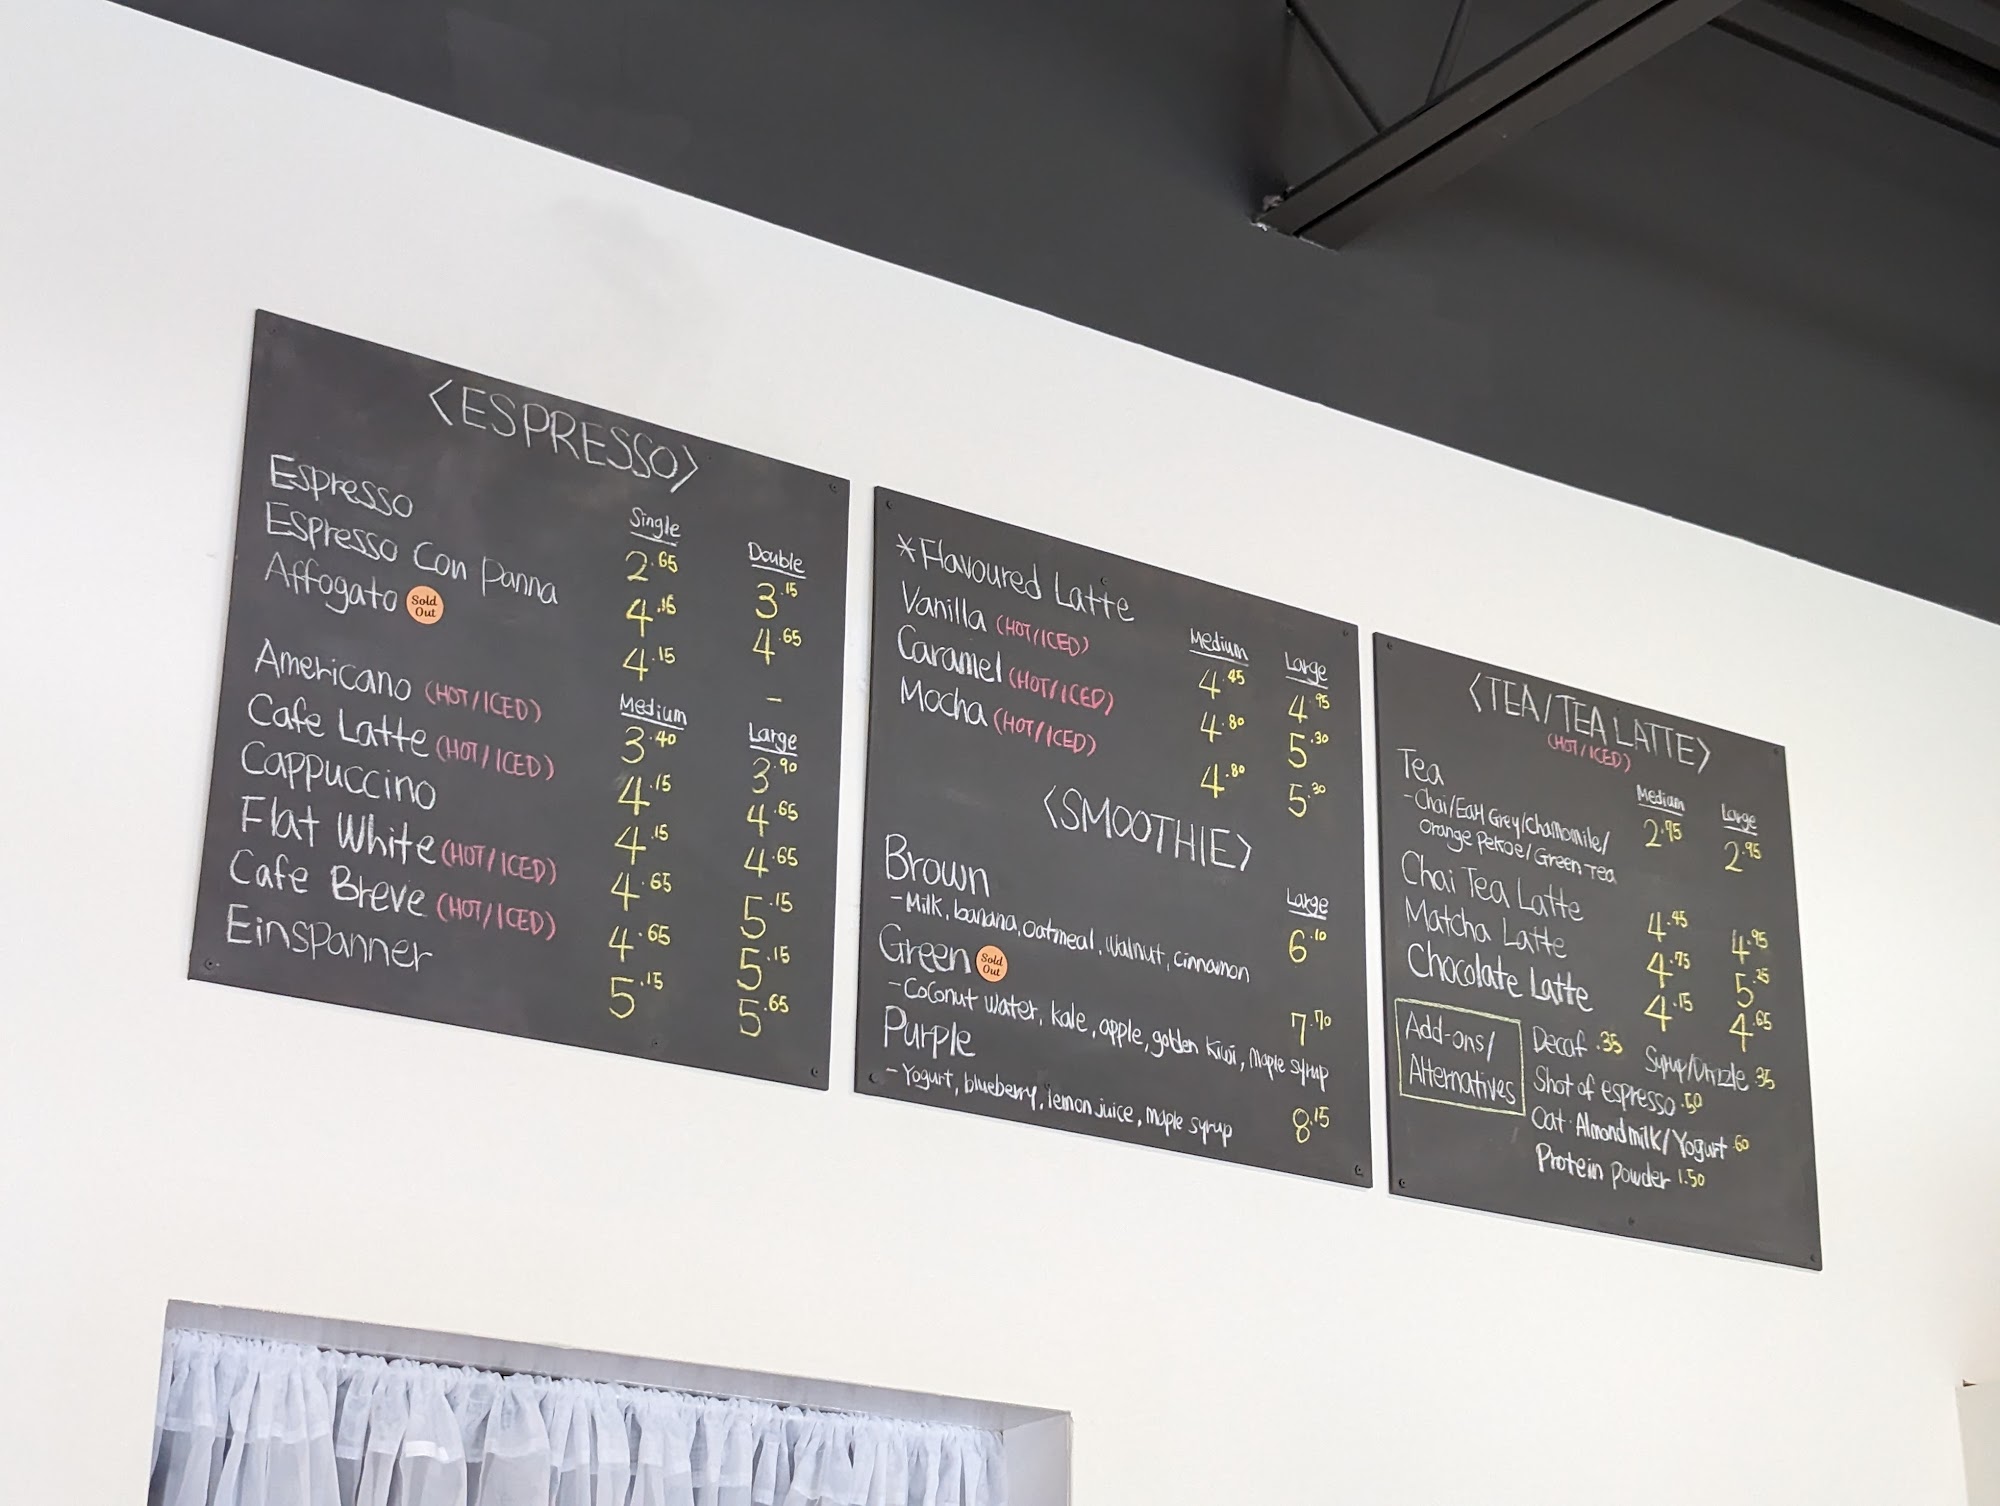 <ESPRESSO>
Single Double
Espresso 2.65 3.15
Espresso Con Panna 4.15 4.65
Affogato Sold Out 4.15 -
Medium Large
Americano (HOT/ICED) 3.40 3.90
Cafe Latte (HOT/ICED) 4.15 4.65
Cappuccino 4.15 4.65
Flat White (HOT/ICED) 4.65 5.15
Cafe Breve (HOT/ICED) 4.65 5.15
Einspanner 5.15 5.65
*Flavoured Latte
Medium Large
Vanilla (HOT/ICED) 4.45 4.95
Caramel (HOT/ICED) 4.80 5.30
Mocha (HOT/ICED) 4.80 5.30
<SMOOTHIE>
Large
Brown 6.10
-Milk, banana, oatmeal, walnut, cinnamon
Green Sold Out 7.70
-Coconut water, kale, apple, golden kiwi, maple syrup
Purple 8.15
-Yogurt, blueberry, lemon juice, maple syrup
<TEA/TEA LATTE>
(HOT/ICED)
Medium Large
Tea 2.75 2.95
-Chai/Earl Grey/Chamomile/
Orange Pekoe/Green Tea
Chai Tea Latte 4.45 4.95
Matcha Latte 4.75 5.25
Chocolate Latte 4.15 4.65
Add-ons/
Alternatives
Decaf .35 Syrup/Drizzle .35
Shot of espresso .50
Oat·Almond milk/Yogurt .60
Protein powder 1.50